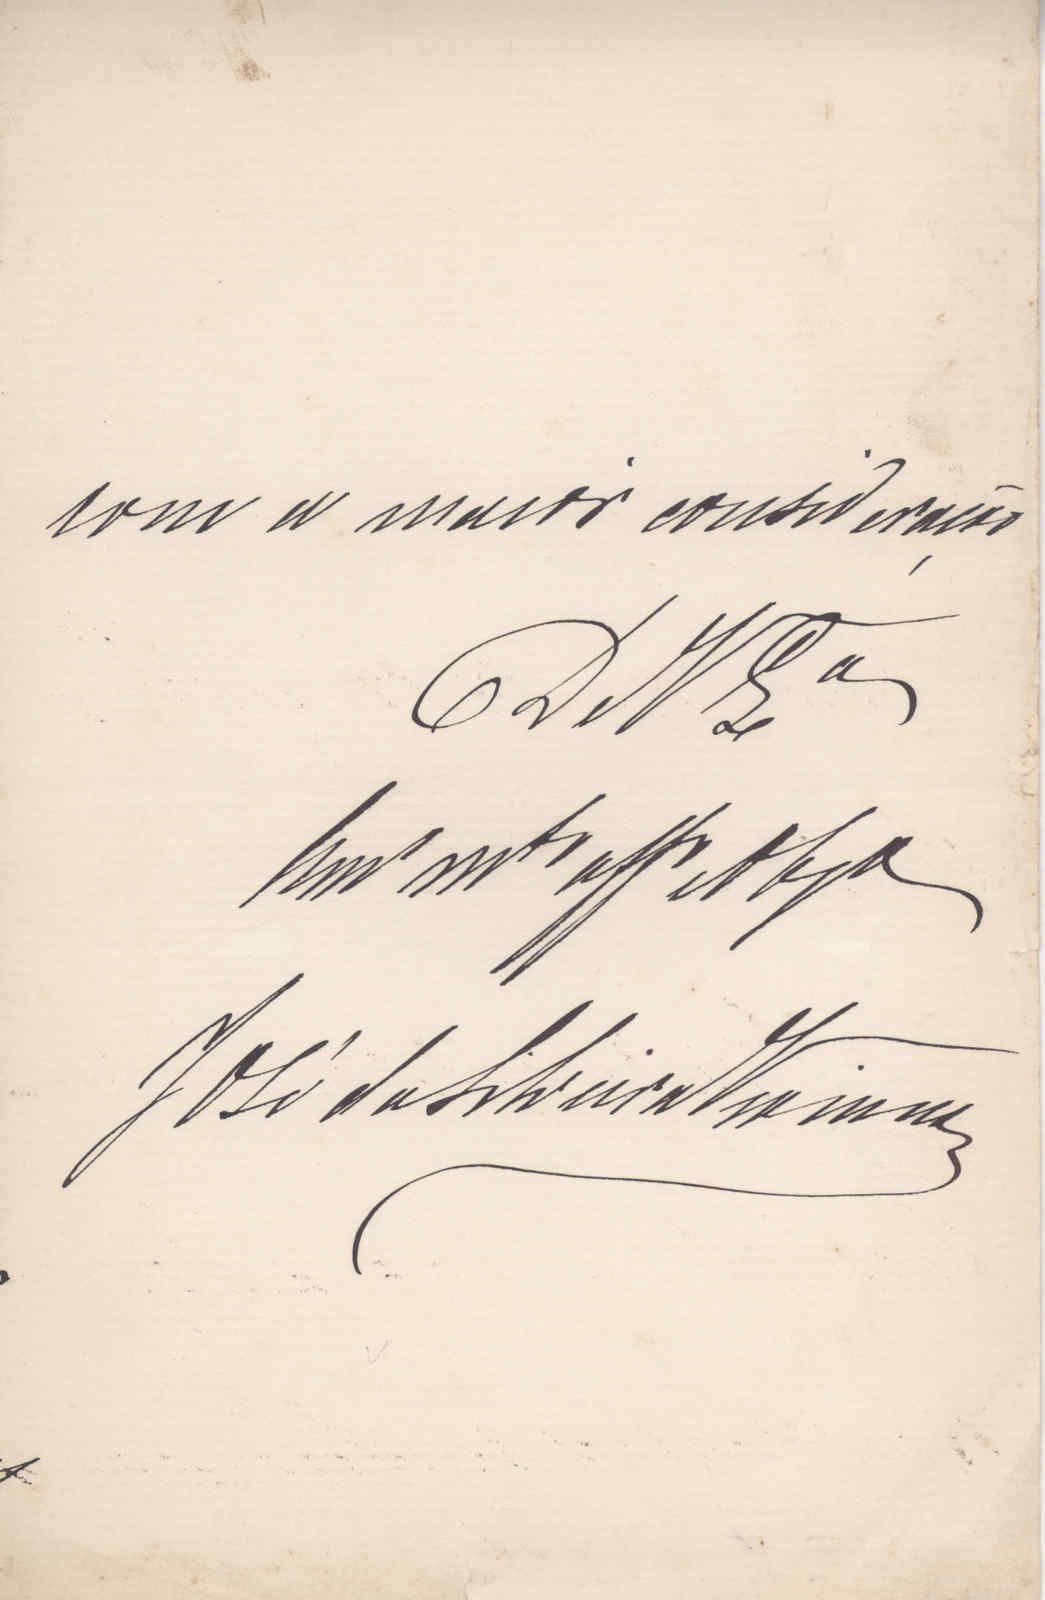 com a maior consideração
De V Exª
Amº mtº affº e obgº
José da Silveira Vianna